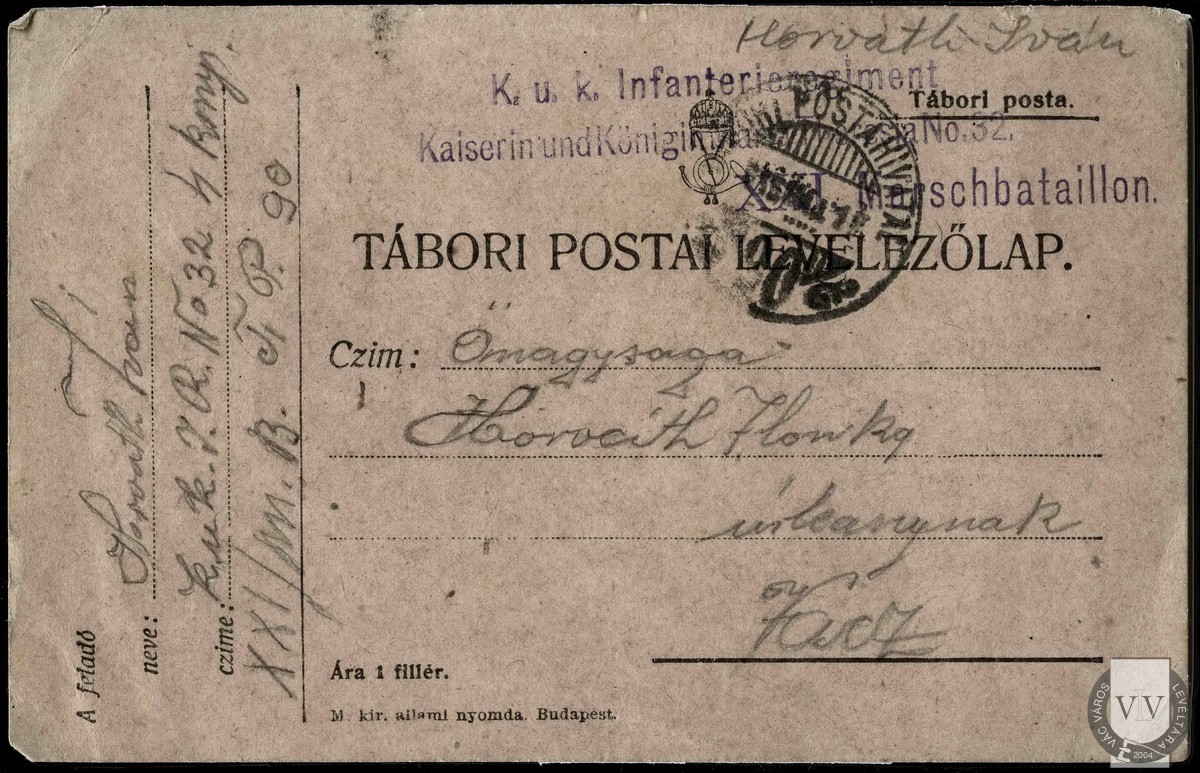 Horváth Iván
K. u. k. Infanterieregiment
Tábori posta.
Kaiserin und Königin No. 32.
XXI. Marschbataillon.
TÁBORI POSTAI LEVELEZŐLAP.
Czim: Őnagysága
Horváth Ilonka
úrleánynak
Vácz
Ára 1 fillér.
M. kir. állami nyomda. Budapest.
A feladó
neve: Horváth Ivan
czime: K. u. k. I. R. No 32 4
XXI/m. B. T. P. 90
POSTAHIVATAL
VÁC VÁROS LEVÉLTÁRA
2004